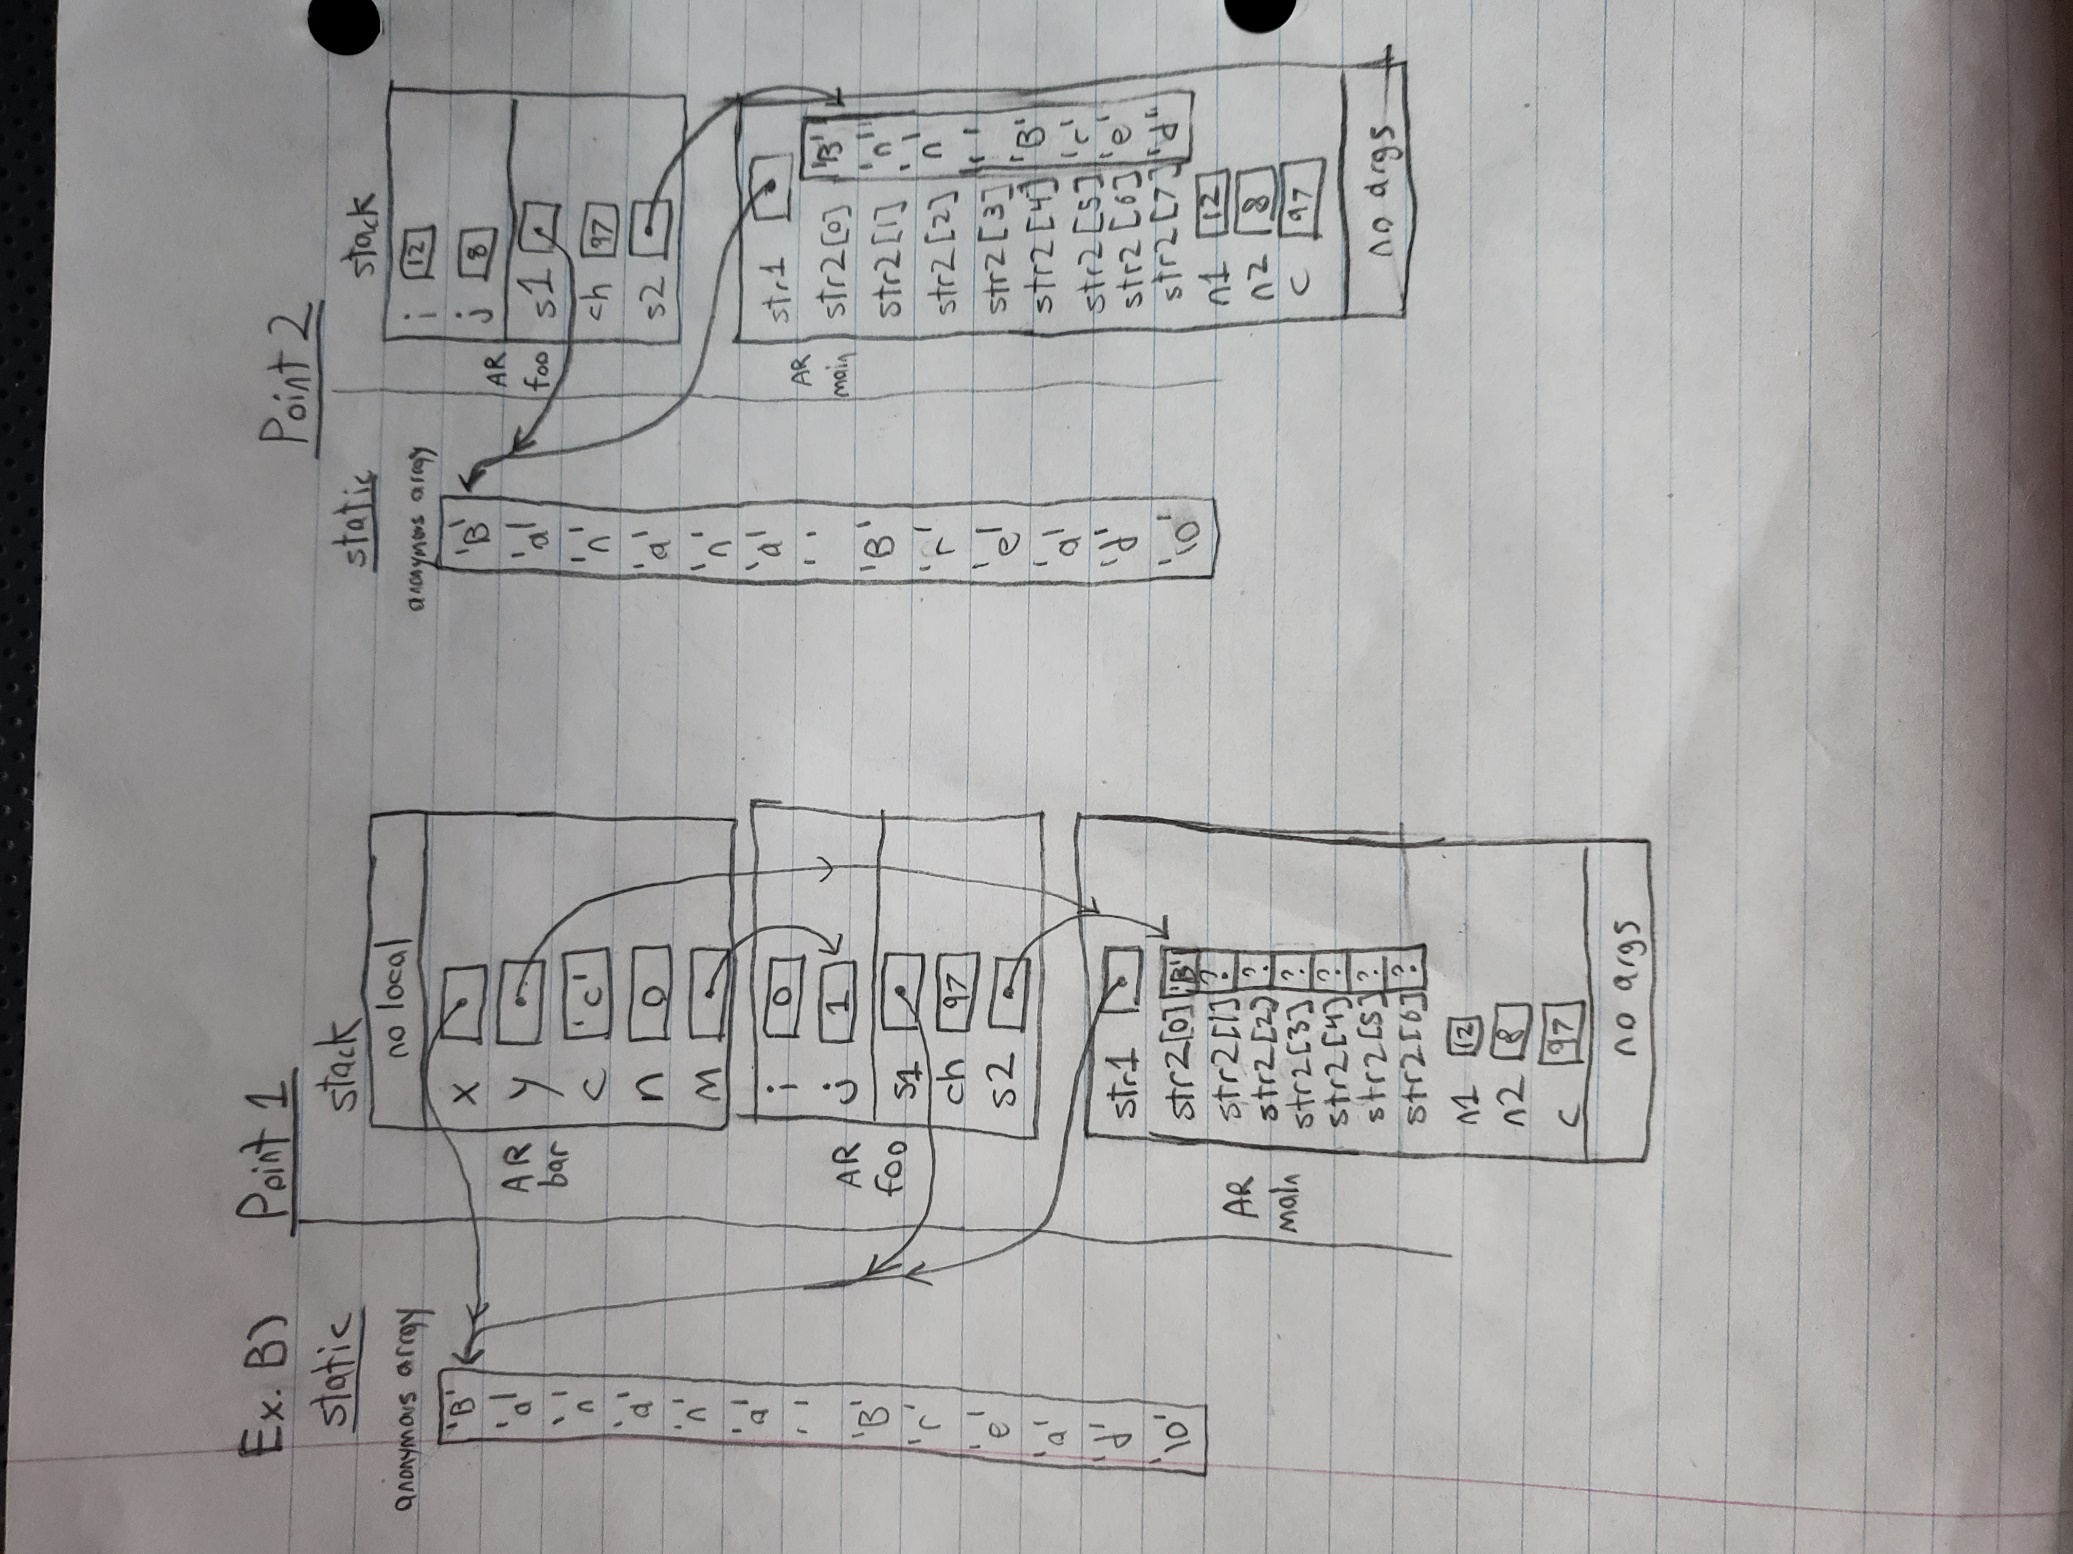 Ex. B)
Point 1
static
stack
anonymous array
'B'
'a'
'n'
'a'
'n'
'a'
' '
'B'
'r'
'e'
'a'
'd'
'\0'
no local
AR bar
x
y
c 'c'
n 0
m
AR foo
i 0
j 1
s1
ch 97
s2
AR main
str1
str2[0] 'B'
str2[1] ?
str2[2] ?
str2[3] ?
str2[4] ?
str2[5] ?
str2[6] ?
n1 12
n2 8
c 97
no args
Point 2
static
stack
anonymous array
'B'
'a'
'n'
'a'
'n'
'a'
' '
'B'
'r'
'e'
'a'
'd'
'\0'
AR foo
i 12
j 8
s1
ch 97
s2
AR main
str1
str2[0] 'B'
str2[1] 'n'
str2[2] 'n'
str2[3] ' '
str2[4] 'B'
str2[5] 'r'
str2[6] 'e'
str2[7] 'd'
n1 12
n2 8
c 97
no args